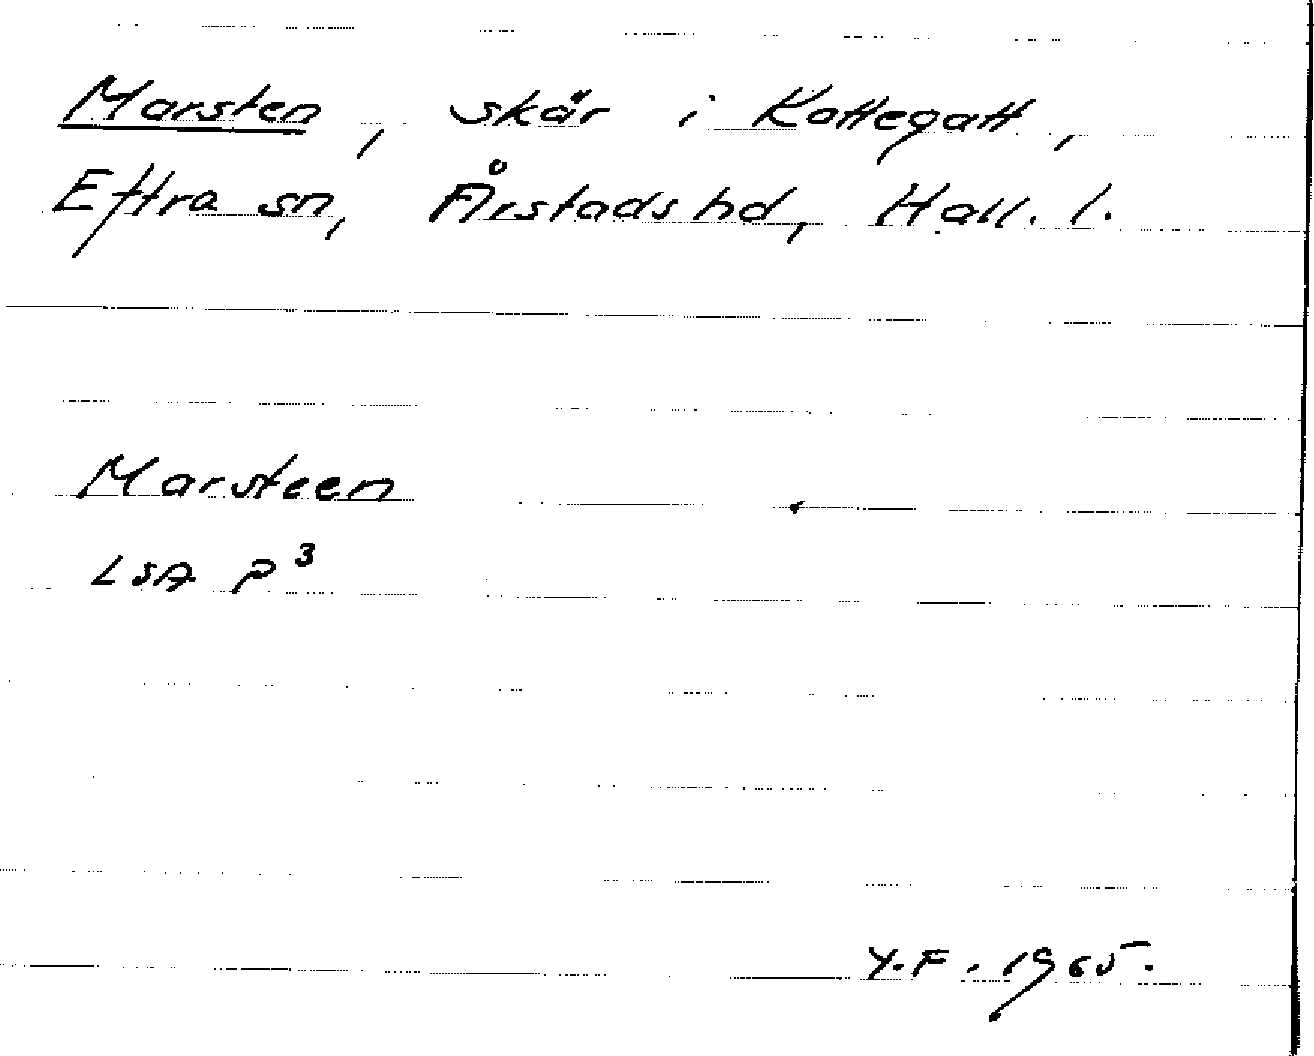 Marsten, skär i Kattegatt,
Eftra sn, Årstads hd, Hall. l.
Marsteen
LSA P³
Y.F. 1965.